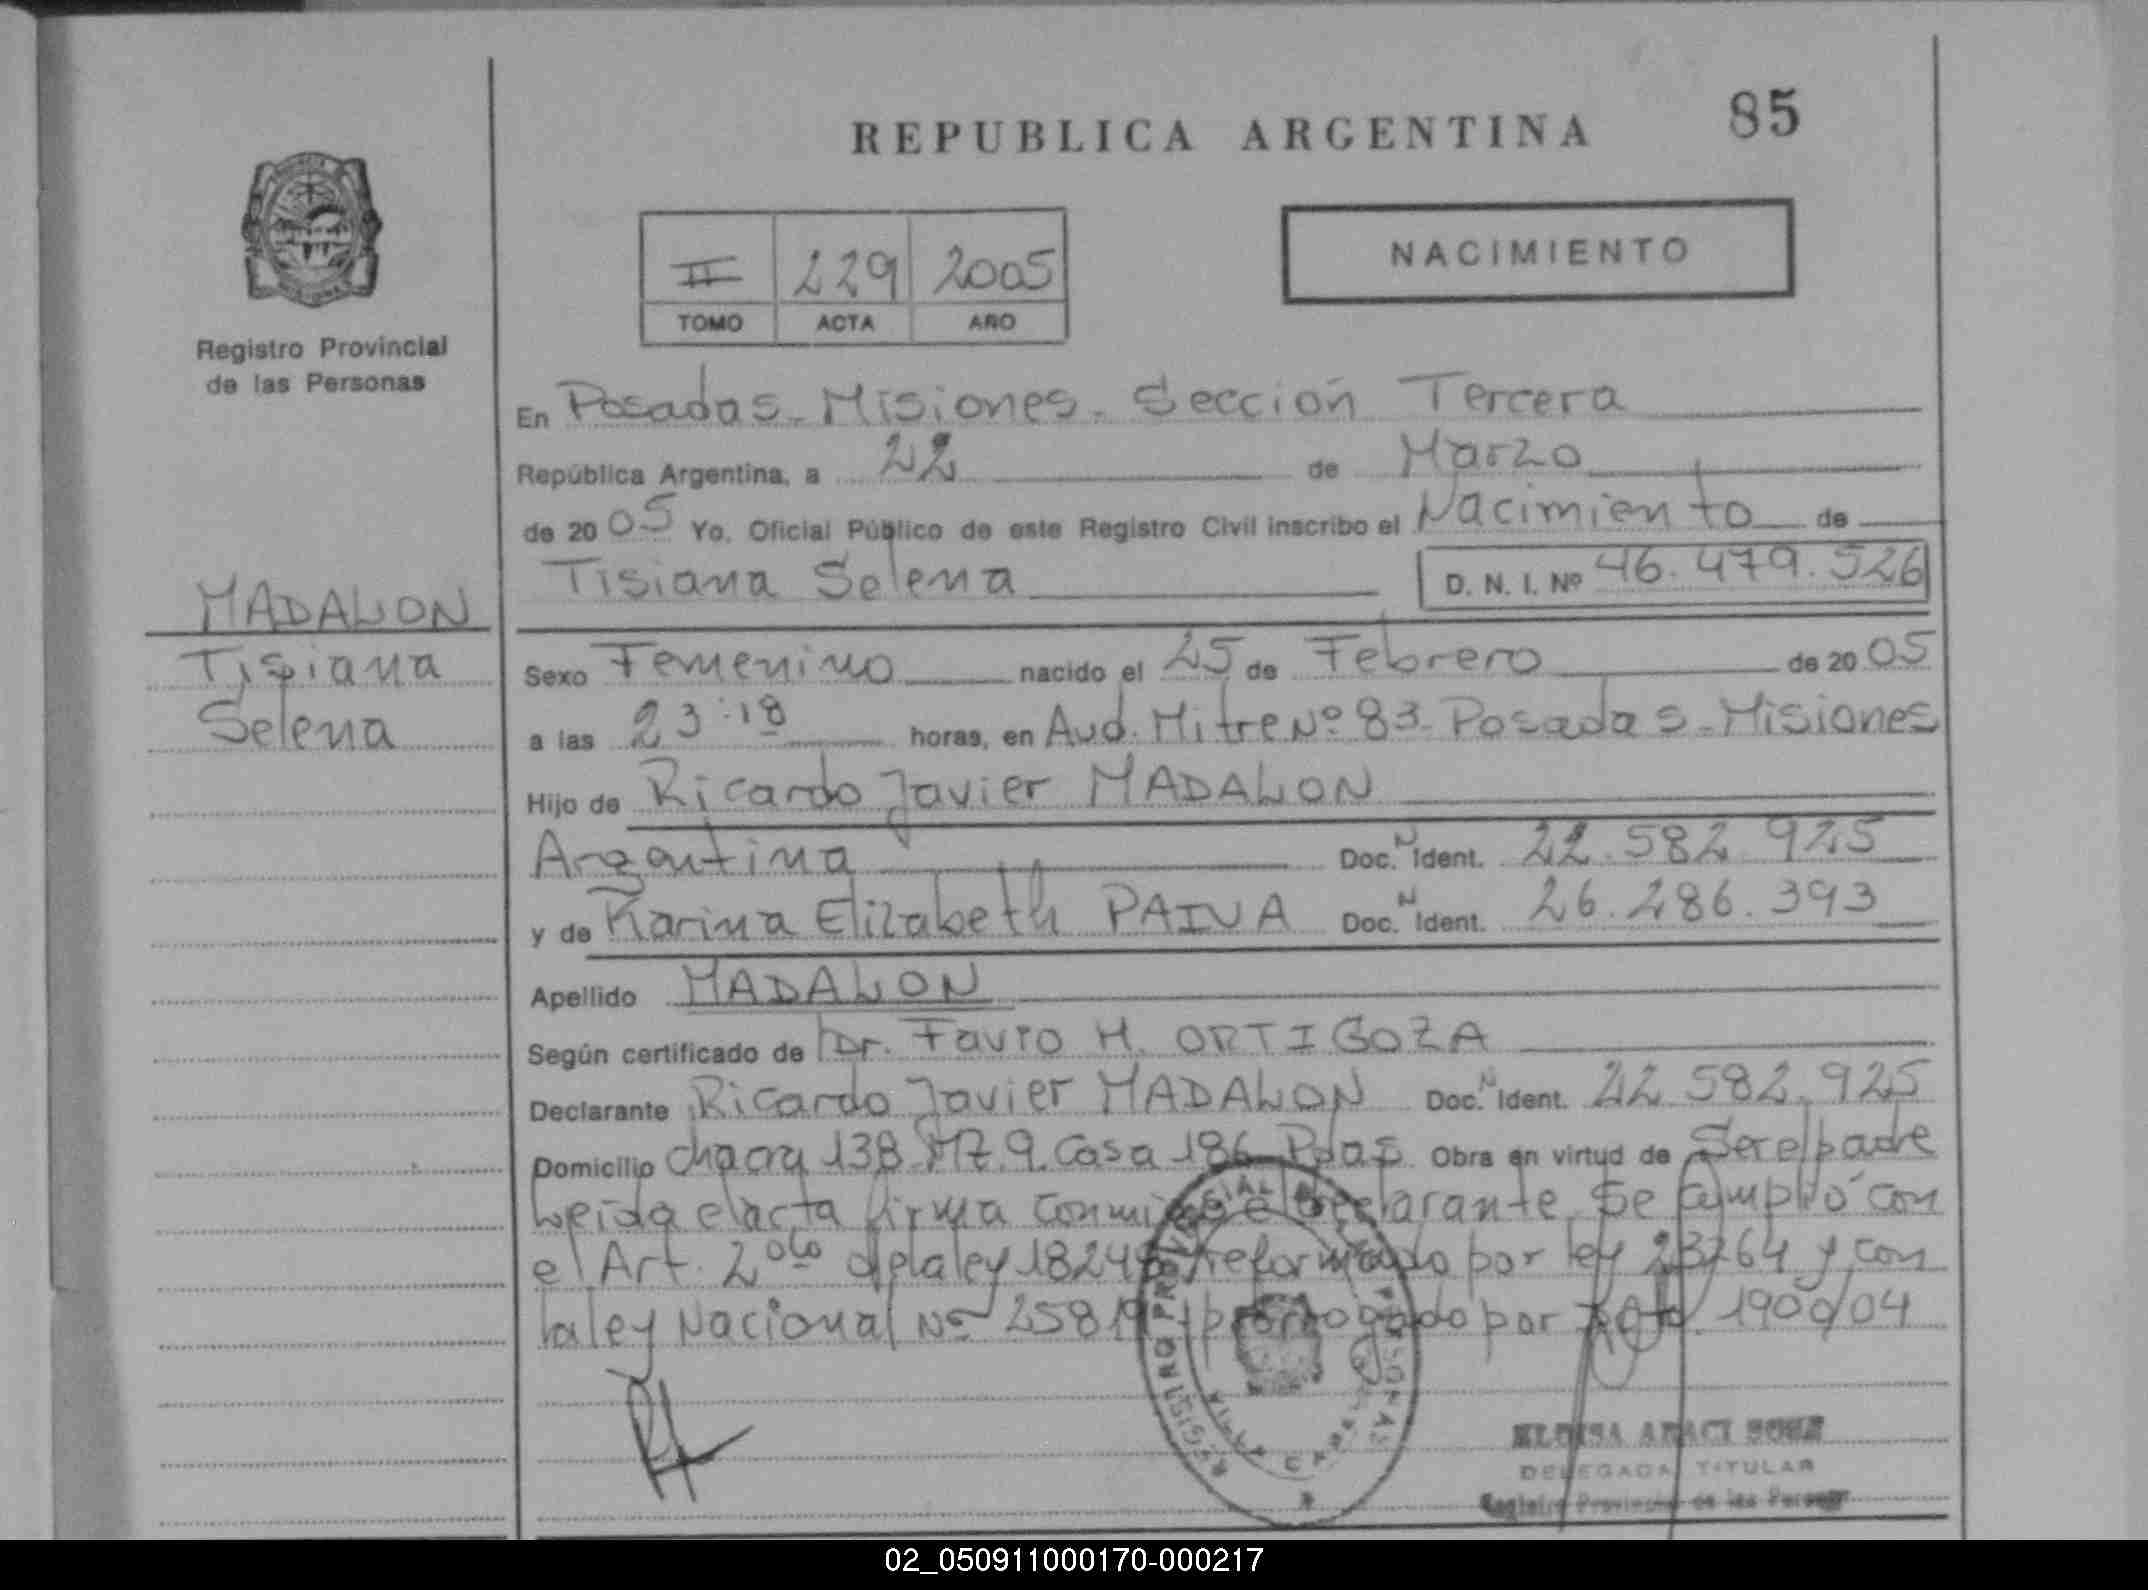 REPUBLICA ARGENTINA
85
NACIMIENTO
II 229 2005
TOMO ACTA AÑO
Registro Provincial
de las Personas
En Posadas - Misiones - Sección Tercera
República Argentina, a 22 de Marzo
de 2005 Yo, Oficial Público de este Registro Civil inscribo el Nacimiento de
Tisiana Selena D. N. I. Nº 46.479.526
MADALLON
Tisiana
Selena
Sexo Femenino nacido el 25 de Febrero de 2005
a las 23:18 horas, en Avd. Mitre Nº 83 - Posadas - Misiones
Hijo de Ricardo Javier MADALLON
Argentina Doc. N Ident. 22.582.925
y de Karina Elizabeth PAIVA Doc. N Ident. 26.286.393
Apellido MADALLON
Según certificado de Dr. Favio H. ORTIGOZA
Declarante Ricardo Javier MADALLON Doc. N Ident. 22.582.925
Domicilio chacra 138 MZ. 9. Casa 186 Pdas. Obra en virtud de Ser el padre
Leida el acta firma conmigo el declarante. Se cumplió con
el Art. 2do de la ley 18248 reformado por ley 23264 y con
la ley Nacional Nº 25819 prorrogado por 1900/04
REGISTRO PROVINCIAL DE LAS PERSONAS
VILLA CABELLO
DELEGADA TITULAR
Registro Provincial de las Personas
02_050911000170-000217